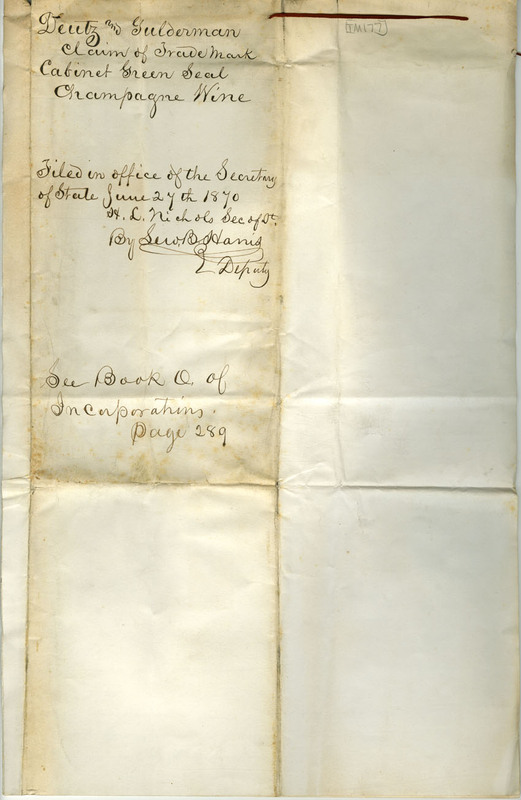 Deutz and Gulderman
Claim of Trade Mark
Cabinet Green Seal
Champagne Wine
TM177
Filed in office of the Secretary
of State June 27th 1870
H. L. Nichols Sec of St.
By Lew B. Harris
Deputy
See Book O. of
Incorporations.
Page 289